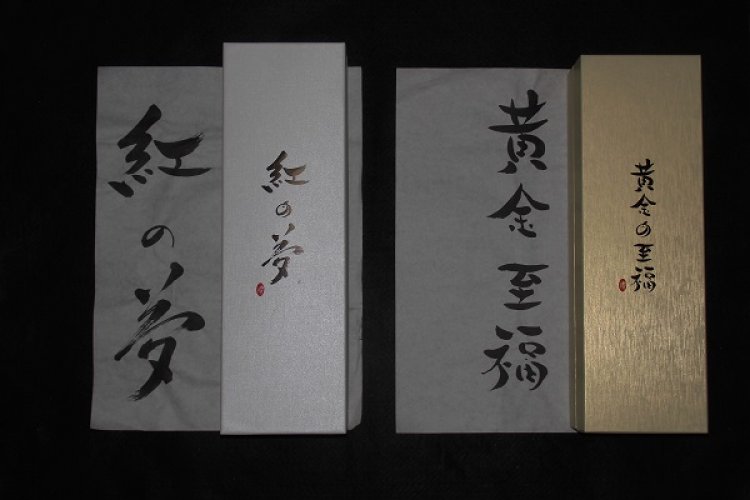 紅の夢
紅の夢
黄金至福
黄金の至福